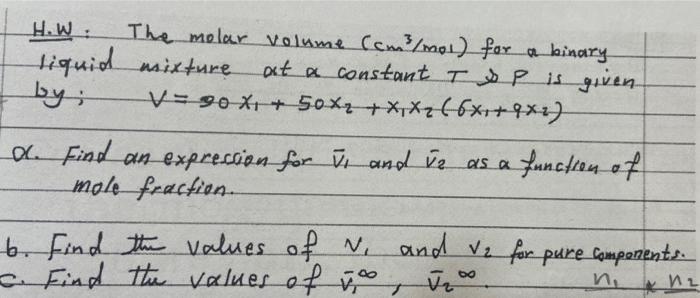 H.W: The molar volume (cm³/mol) for a binary
liquid mixture at a constant T & P is given
by; V = 90 x₁ + 50x₂ + x₁x₂ (6x₁+9x₂)
a. Find an expression for v̄₁ and v̄₂ as a function of
mole fraction.
b. Find the values of v₁ and v₂ for pure components.
c. Find the values of v̄₁^∞, v̄₂^∞. n₁ n₂